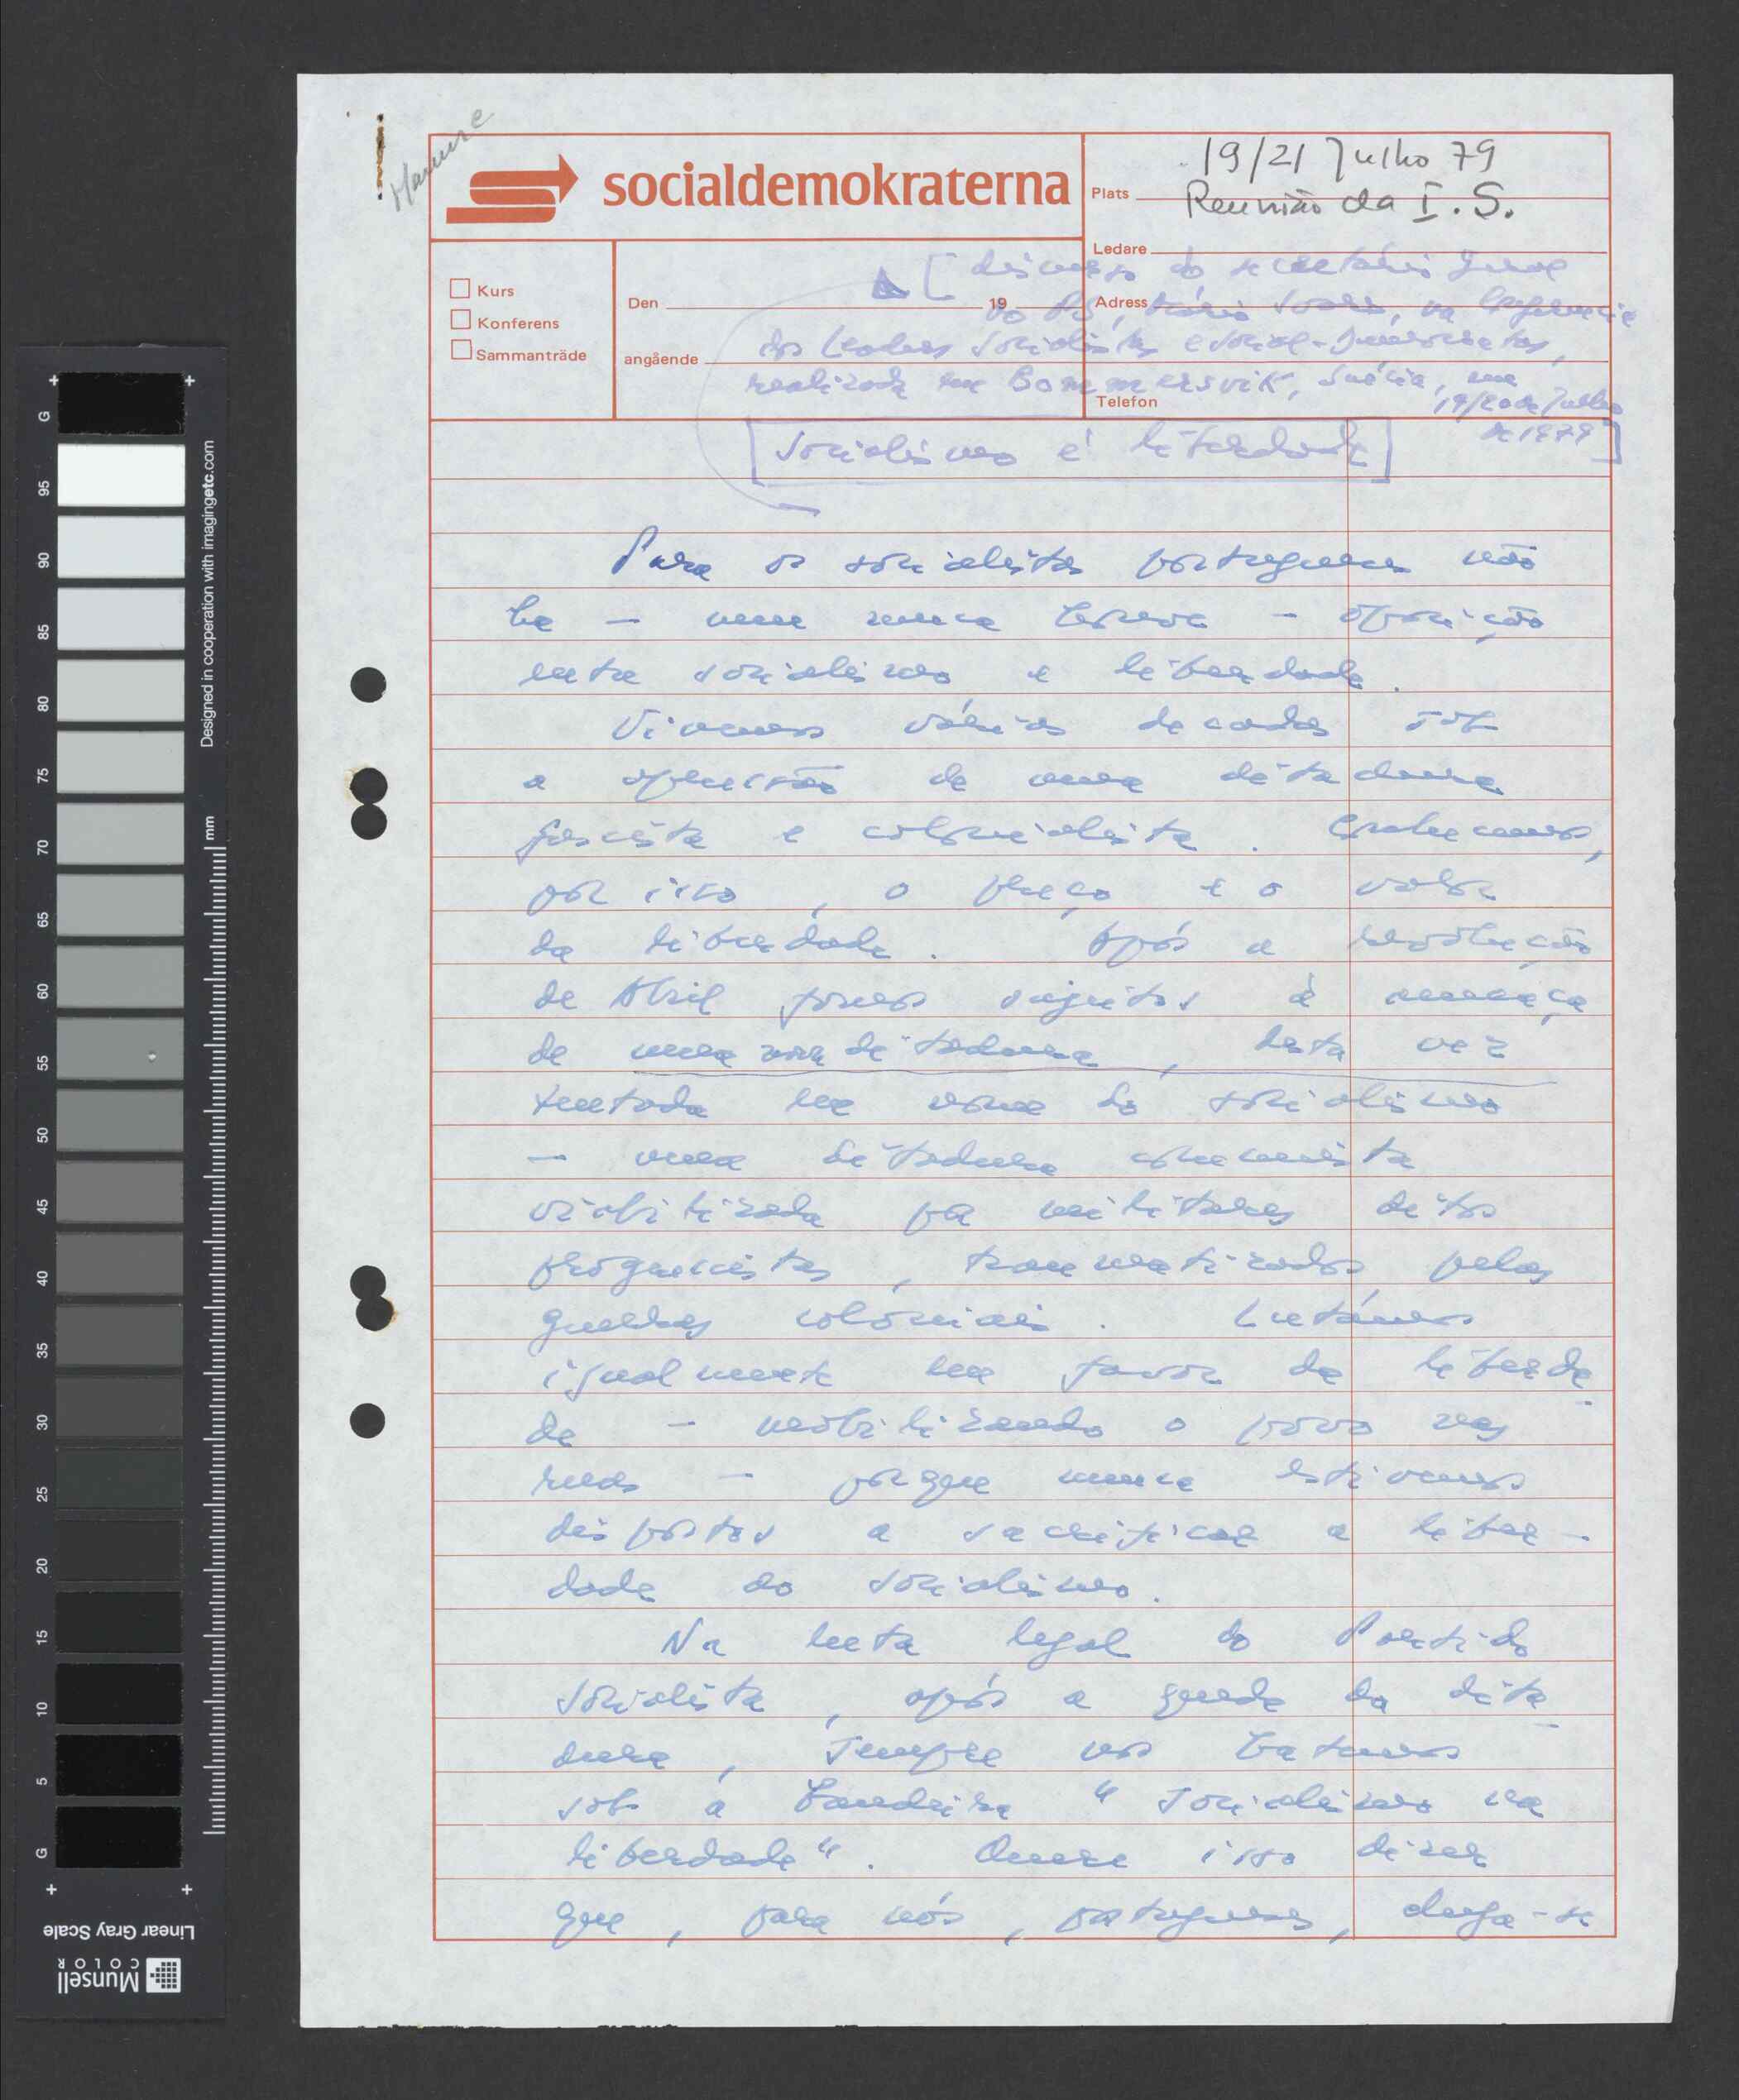 socialdemokraterna
19/21 Julho 79
Plats
Reunião da I. S.
Ledare
Kurs
Konferens
Sammanträde
Den 19
angående
Adress
Telefon
[discurso do secretário geral
do PS, Mário Soares, na Conferência
dos Leaders Socialistas e Social-Democratas,
realizada em Bommersvik, Suécia, em
19/20 de Julho
de 1979]
[Socialismo é liberdade]
Para os socialistas portugueses não
há – nem nunca houve – oposição
entre socialismo e liberdade.
Vivemos várias decadas sob
a opressão de uma ditadura
fascista e colonialista. Conhecemos,
por isso, o preço e o valor
da liberdade. Após a revolução
de Abril fomos sujeitos à ameaça
de uma nova ditadura, desta vez
tentada em nome do socialismo
– uma ditadura comunista
viabilizada por militares ditos
progressistas, traumatizados pelas
guerras coloniais. Lutámos
igualmente em favor da liberda-
de – mobilizando o povo nas
ruas – porque nunca estivemos
dispostos a sacrificar a liber-
dade ao socialismo.
Na luta legal do Partido
Socialista, após a queda da dita-
dura, sempre nos batemos
sob a bandeira "Socialismo na
liberdade". Quere isso dizer
que, para nós, portugueses, chega-se
Designed in cooperation with imagingetc.com
mm
G
95
90
85
80
75
70
65
60
55
50
45
40
35
30
25
20
15
10
5
G
Linear Gray Scale
Munsell
COLOR